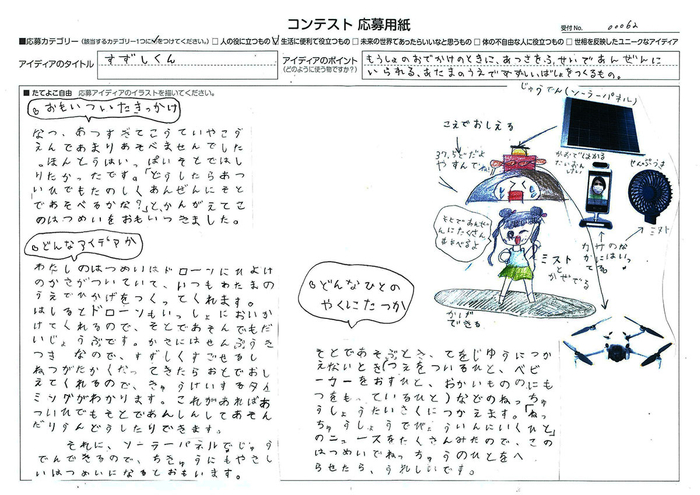 コンテスト 応募用紙
受付No. 00062
■応募カテゴリー(該当するカテゴリー1つに✓をつけてください。) □人の役に立つもの ☑生活に便利で役立つもの □未来の世界であったらいいなと思うもの □体の不自由な人に役立つもの □世相を反映したユニークなアイディア
アイディアのタイトル
すずしくん
アイディアのポイント
(どのように使う物ですか?)
もうしょのおでかけのときに、あつさをふせいであんぜんに
いられる、あたまのうえですずしいばしょをつくるもの。
■たてよこ自由 応募アイディアのイラストを描いてください。
おもいついたきっかけ
なつ、あつすぎてこうていやこう
えんであまりあそべませんでした
。ほんとうはいっぱいそとではし
りたかったです。「どうしたらあつ
いひでもたのしくあんぜんにそと
であそべるかな?」と、かんがえてこ
のはつめいをおもいつきました。
どんなアイデアか
わたしのはつめいはドローンにひよけ
のかさがついていて、いつもわたまの
うえでひかげをつくってくれます。
はしるとドローンもいっしょにおいか
けてくれるので、そとであそんでもだ
いじょうぶです。かさにはせんぷうき
つき なので、すずしくすごせるし
ねつがたかくなってきたらおとでおし
えてくれるので、きゅうけいするタイ
ミングがわかります。これがあればあ
ついひでもそとであんしんしてあそん
だりうんどうしたりできます。
それに、ソーラーパネルでじゅう
でんできるので、ちきゅうにもやさし
いはつめいになるとおもいます。
じゅうでん(ソーラーパネル)
こえでおしえる
37.5どだよ
やすんでね!
かおではかる
たいおん
けい
せんぷうき
ミスト
そとであんぜ
んにたくさん
あそべるよ
ミスト
と
かぜでる
かさのな
かにはいっ
てる
かげ
できる
どんなひとの
やくにたつか
そとであそぶとき、てをじゆうにつか
えないとき(つえをついるひと、ベビ
ーカーをおすひと、おかいもののにも
つをもっているひと)などのねっちゅ
うしょうたいさくにつかえます。「ねっ
ちゅうしょうでびょういんにいくひと」
のニュースをたくさんみたので、この
はつめいでねっちゅうのひとをへ
らせたら、うれしいです。